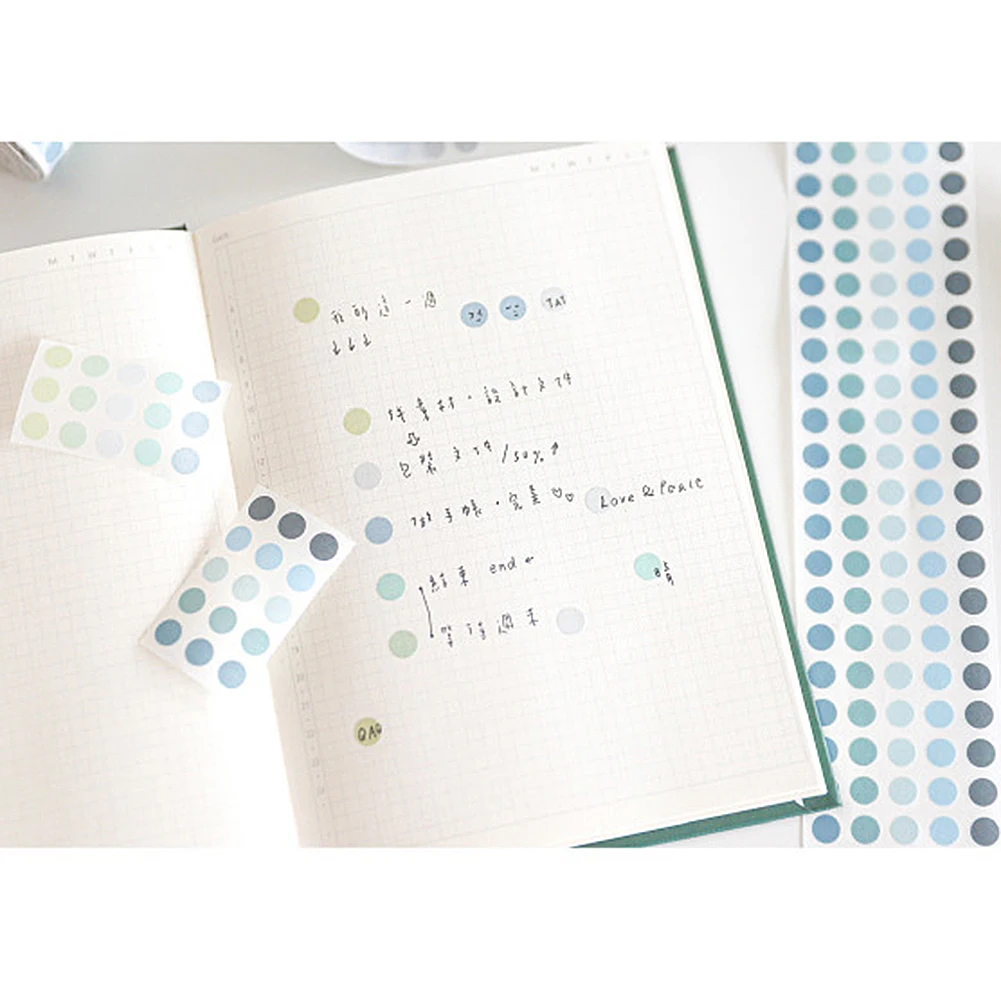 M T W T F
DATE
M T W T F S S
我的這一週 TAT
↓↓↓
件素材·設計文件
包裝文件/50%↑
做手帳·完美♡♡ Love & Peace
結束 end ←
8月
等待週末
QAQ